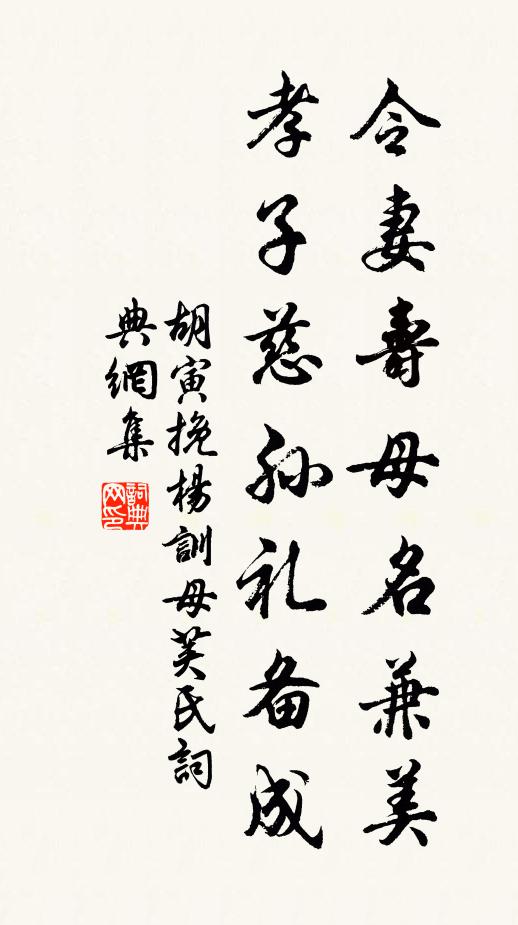 令妻壽母名兼美
孝子慈孙礼备成
胡寅挽楊訓母芙氏詞
典網集
詞典网印